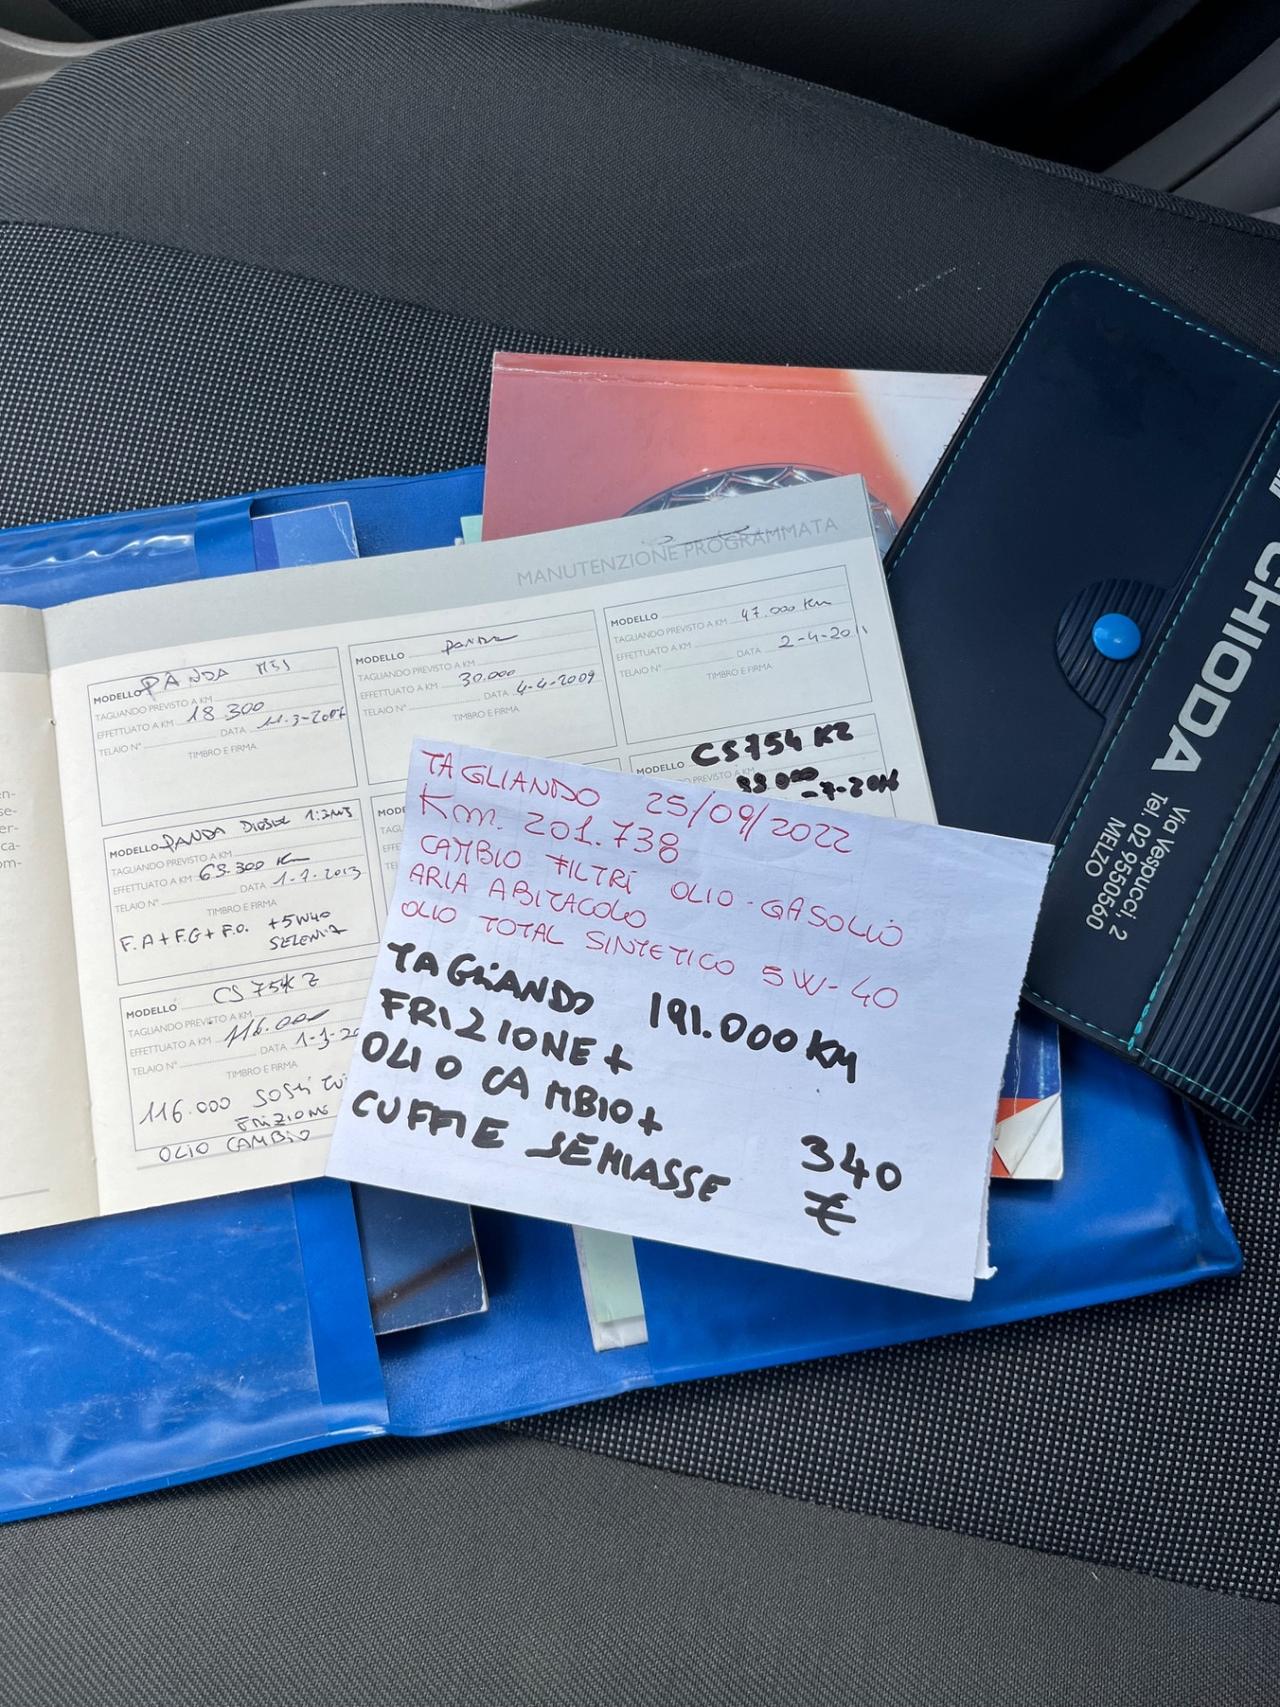 MANUTENZIONE PROGRAMMATA
MODELLO PANDA
TAGLIANDO PREVISTO A KM
EFFETTUATO A KM 18.300
DATA 11-3-2007
TELAIO N°
TIMBRO E FIRMA
MODELLO PANDA
TAGLIANDO PREVISTO A KM
EFFETTUATO A KM 30.000
DATA 4-4-2009
TELAIO N°
TIMBRO E FIRMA
MODELLO
TAGLIANDO PREVISTO A KM 47.000 Km
EFFETTUATO A KM
DATA 2-4-2011
TELAIO N°
TIMBRO E FIRMA
MODELLO PANDA DIESEL
TAGLIANDO PREVISTO A KM
EFFETTUATO A KM 69.300 Km
DATA 1-1-2013
TELAIO N°
TIMBRO E FIRMA
F.A + F.G + F.O. +5W40
SELENIA
MO
TAG
EFFE
TEL
MODELLO CS754KZ
PREVISTO A KM
MODELLO CS754KZ
TAGLIANDO PREVISTO A KM
EFFETTUATO A KM 116.000
DATA 1-3-20
TELAIO N°
TIMBRO E FIRMA
116.000 SOSTITUI
FRIZIONE
OLIO CAMBIO
TAGLIANDO 25/09/2022
Km. 201.738
CAMBIO FILTRI OLIO-GASOLIO
ARIA ABITACOLO
OLIO TOTAL SINTETICO 5W-40
TAGLIANDO 191.000 KM
FRIZIONE +
OLIO CAMBIO +
CUFFIE SEMIASSE 340
€
CHIODA
Via Vespucci, 2
Tel. 02 9550560
MELZO